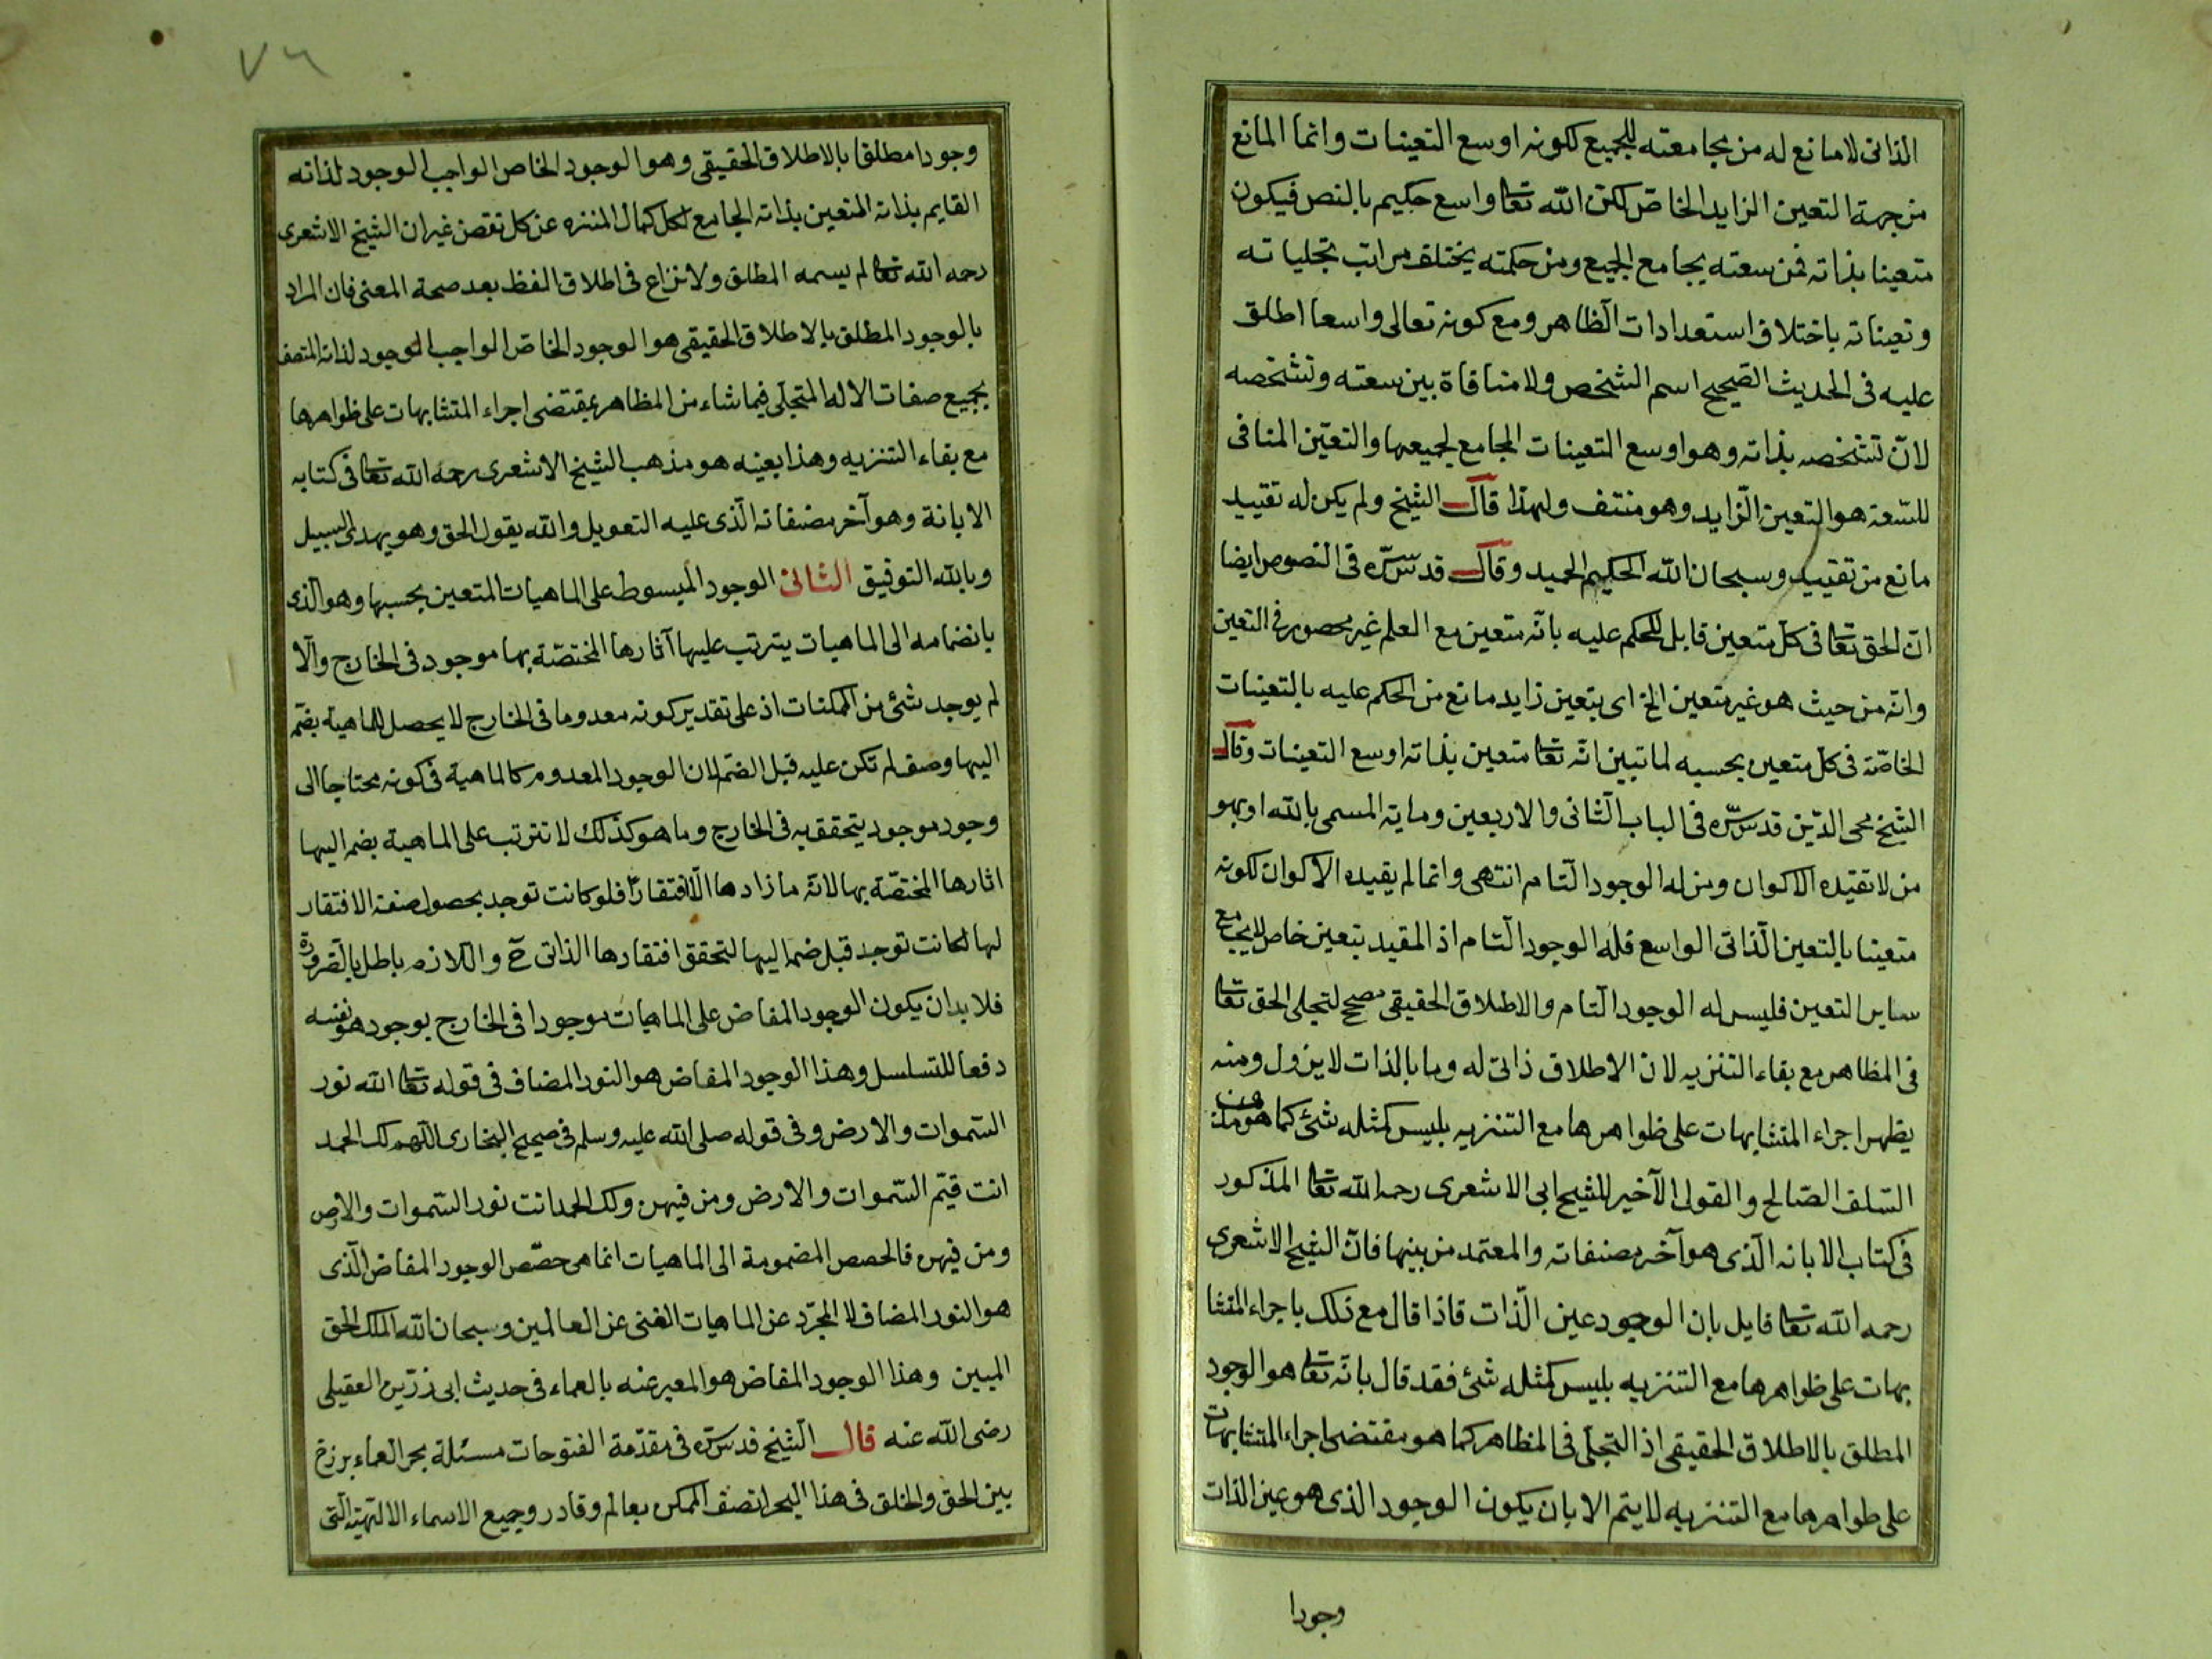 الذاتى لا مانع له من مجامعته للجميع لكونه اوسع التعينات وانما المانع
من جهة التعين الزايد الخاص لكن الله تعا واسع حكيم بالنص فيكون
متعينا بذاته فمن سعته يجامع الجميع ومن حكمته يختلف مراتب تجلياته
وتعيناته باختلاف استعدادات الظاهر ومع كونه تعالى واسعا اطلق
عليه فى الحديث الصحيح اسم الشخص ولا منافاة بين سعته وتشخصه
لانّ تشخصه بذاته وهو اوسع التعينات الجامع لجميعها والتعيّن المنافى
للسّعة هو التعين الزايد وهو منتف ولهذا قال الشيخ ولم يكن له تقييد
مانع من تقييد وسبحان الله الحكيم الحميد وقال قدس سرّه فى النصوص ايضا
انّ الحق تعا فى كل متعين قابل للحكم عليه بانّه متعين مع العلم غير محصور فى التعين
وانّه من حيث هو غير متعين الخ اى بتعين زايد مانع من الحكم عليه بالتعينات
الخاصّة فى كل متعين بحسبه لما تبين انّه تعا متعين بذاته اوسع التعينات وقال
الشيخ محى الدّين قدس سرّه فى الباب الثانى والاربعين وماية المسمى بالله او بهو
من لا تقيّده الاكوان ومن له الوجود التام انتهى وانما لم يقيده الاكوان لكونه
متعينا بالتعين الذاتى الواسع فله الوجود التام اذ المقيد بتعين خاص لا يجامع
ساير التعين فليس له الوجود التام والاطلاق الحقيقى مصحح لتجلى الحق تعا
فى المظاهر مع بقاء التنزيه لان الاطلاق ذاتى له وما بالذات لا يزول ومنه
يظهر اجراء المتشابهات على ظواهرها مع التنزيه بليس كمثله شئ كما هو مذهب
السّلف الصّالح والقول الاخير للشيخ ابى الاشعرى رحمه الله تعا المذكور
فى كتاب الابانه الذى هو آخر مصنفاته والمعتمد من بينها فانّ الشيخ الاشعرى
رحمه الله تعا قايل بان الوجود عين الذات فاذا قال مع ذلك باجراء المتشا
بهات على ظواهرها مع التنزيه بليس كمثله شئ فقد قال بانّه تعا هو الوجود
المطلق بالاطلاق الحقيقى اذ التجلى فى المظاهر كما هو مقتضى اجراء المتشابهات
على ظواهرها مع التنزيه لا يتم الا بان يكون الوجود الذى هو عين الذات
وجودا
٧٦
وجودا مطلقا بالاطلاق الحقيقى وهو الوجود الخاص الواجب الوجود لذاته
القايم بذاته المتعين بذاته الجامع لكل كمال المنزه عن كل نقص غير ان الشيخ الاشعرى
رحمه الله تعا لم يسمه المطلق ولا نزاع فى اطلاق اللفظ بعد صحة المعنى فان المراد
بالوجود المطلق بالاطلاق الحقيقى هو الوجود الخاص الواجب الوجود لذاته المتصف
بجميع صفات الاله المتجلى فيما شاء من المظاهر بمقتضى اجراء المتشابهات على ظواهرها
مع بقاء التنزيه وهذا بعينه هو مذهب الشيخ الاشعرى رحمه الله تعا فى كتابه
الابانة وهو آخر مصنفاته الّذى عليه التعويل والله يقول الحق وهو يهدى السبيل
وبالله التوفيق الثانى الوجود المبسوط على الماهيات المتعين بحسبها وهو الذى
بانضمامه الى الماهيات يترتب عليها آثارها المختصّة بها موجود فى الخارج والّا
لم يوجد شئ من الممكنات اذ على تقدير كونه معدوما فى الخارج لا يحصل للماهية بضم
اليها وصف لم تكن عليه قبل الضم لان الوجود المعدوم كالماهية فى كونه محتاجا الى
وجود موجود يتحقق به فى الخارج وما هو كذلك لا تترتب على الماهية بضم اليها
اثارها المختصّة بها لانّه ما زادها الّا افتقارا فلو كانت توجد بحصول صفة الافتقار
لها لكانت توجد قبل ضمه اليها لتحقق افتقارها الذاتى ح واللازم باطل بالضرورة
فلا بد ان يكون الوجود المفاض على الماهيات موجودا فى الخارج بوجود هو نفسه
دفعا للتسلسل وهذا الوجود المفاض هو النور المضاف فى قوله تعا الله نور
السّموات والارض وفى قوله صلى الله عليه وسلم فى صحيح البخارى اللّهم لك الحمد
انت قيّم السّموات والارض ومن فيهن ولك الحمد انت نور السّموات والارض
ومن فيهن فالحصص المضمومة الى الماهيات انما هى حصّص الوجود المفاض الّذى
هو النور المضاف لا المجرّد عن الماهيات الغنى عن العالمين وسبحان الله الملك الحق
المبين وهذا الوجود المفاض هو المعبر عنه بالعماء فى حديث ابى رزين العقيلى
رضى الله عنه قال الشيخ قدس سرّه فى مقدّمة الفتوحات مسئلة بحر العماء برزخ
بين الحق والخلق فى هذا البحر اتصف الممكن بعالم وقادر وجميع الاسماء الالهيّة الّتى